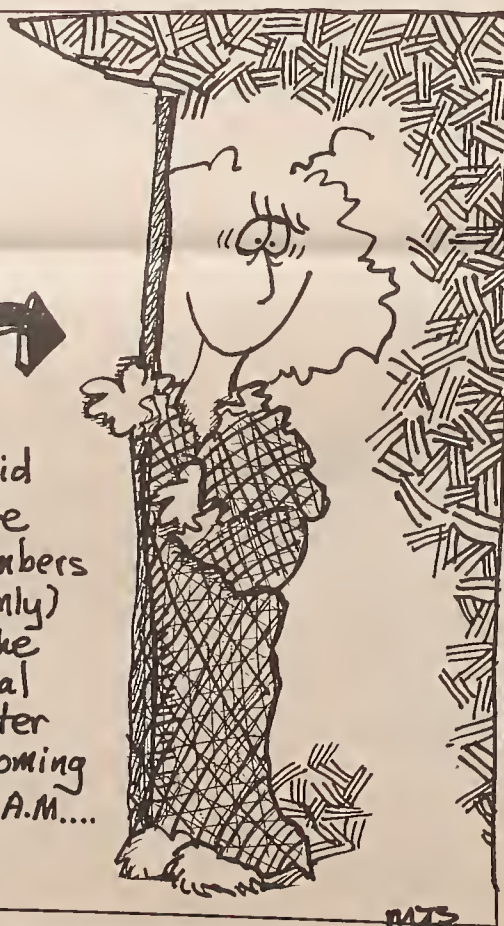 id
e
mbers
nly)
he
al
ter
oming
A.M....
MJS